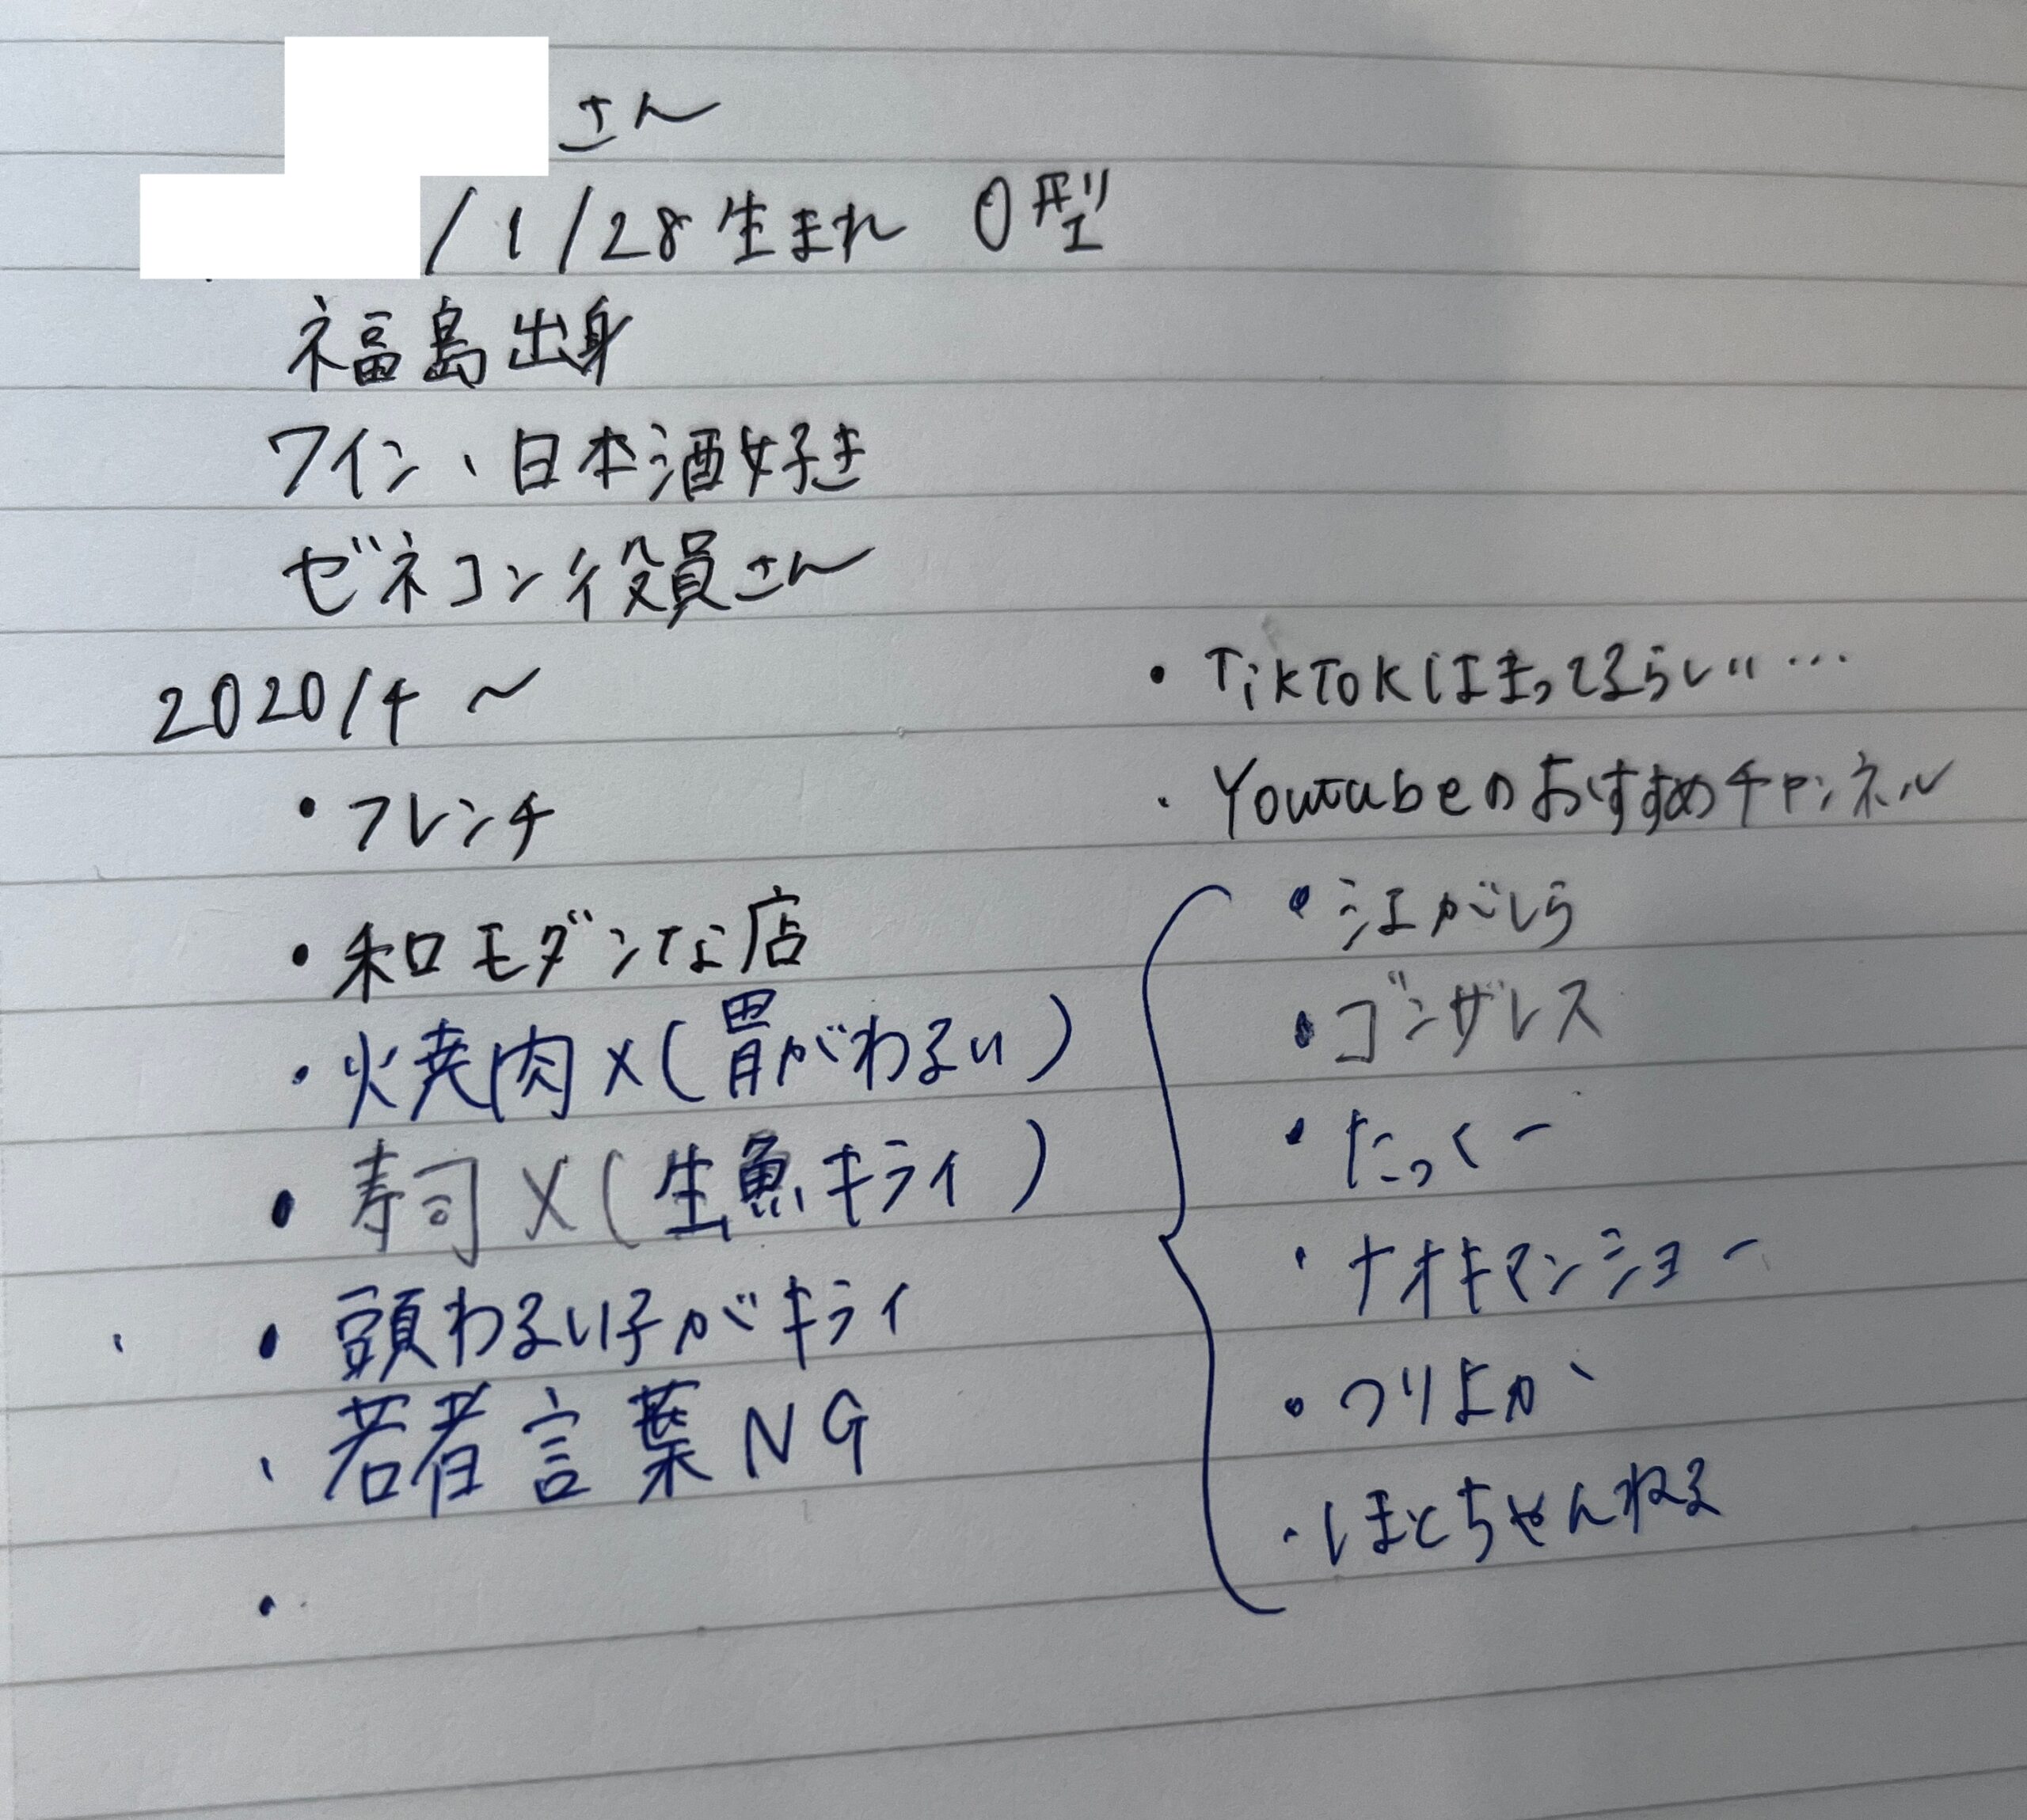 さん
/1/28生まれ O型
福島出身
ワイン、日本酒好き
ゼネコン役員さん
2020/4〜
・フレンチ
・和モダンな店
・焼肉×(胃がわるい)
・寿司×(生魚キライ)
・頭わるい子がキライ
、若者言葉NG
・
・TikTokはまってるらしい…
・Youtubeのおすすめチャンネル
・江がしら
・ゴンザレス
・たっくー
・ナオキマンショー
・つりよか
・はとちゃんねる